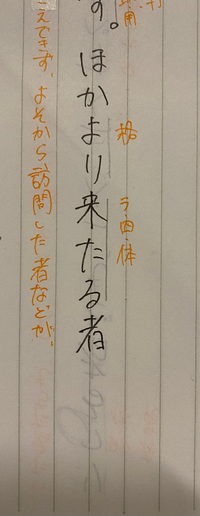 用
格 ラ・四・体
す。ほかより来たる者
えできず、よそから訪問した者などが、